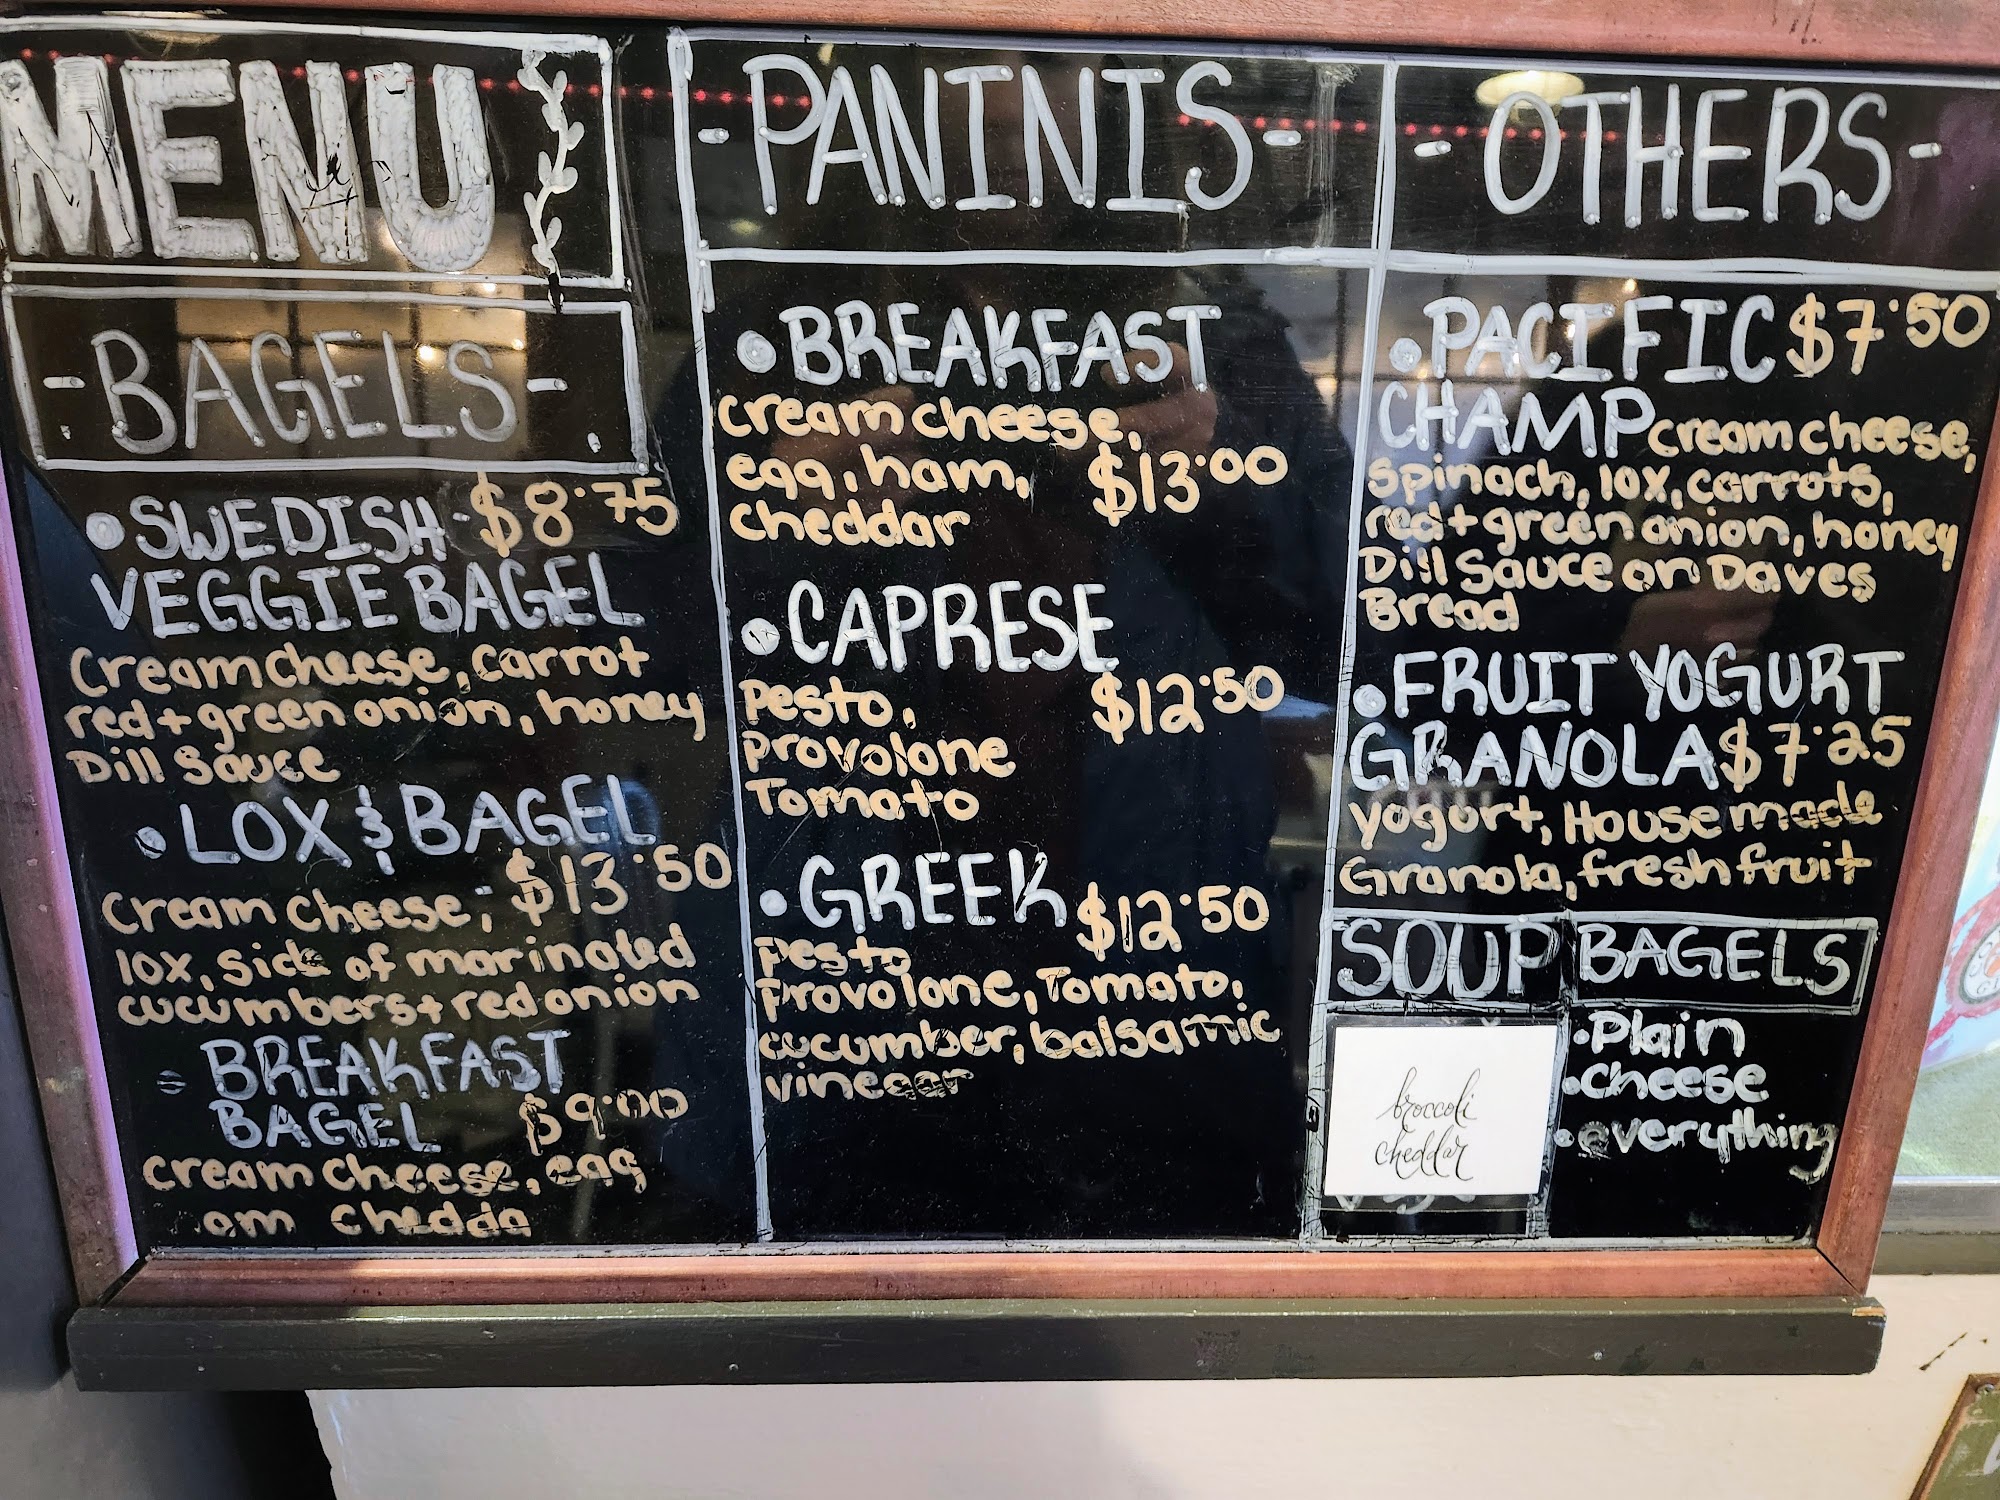 MENU
-BAGELS-
•SWEDISH-$8.75
VEGGIE BAGEL
Cream cheese, carrot
red+green onion, honey
Dill Sauce
•LOX & BAGEL
$13.50
Cream cheese,
lox, side of marinated
cucumbers+red onion
BREAKFAST
BAGEL $9.00
cream cheese, egg
-PANINIS-
•BREAKFAST
cream cheese,
egg, ham, $13.00
cheddar
•CAPRESE
pesto, $12.50
provolone
Tomato
•GREEK $12.50
pesto
provolone, Tomato,
cucumber, balsamic
vinegar
-OTHERS-
•PACIFIC $7.50
CHAMP cream cheese,
spinach, lox, carrots,
red+green onion, honey
Dill Sauce on Daves
Bread
•FRUIT YOGURT
GRANOLA $7.25
yogurt, House made
Granola, fresh fruit
SOUP
broccoli
cheddar
BAGELS
•Plain
•cheese
•everything